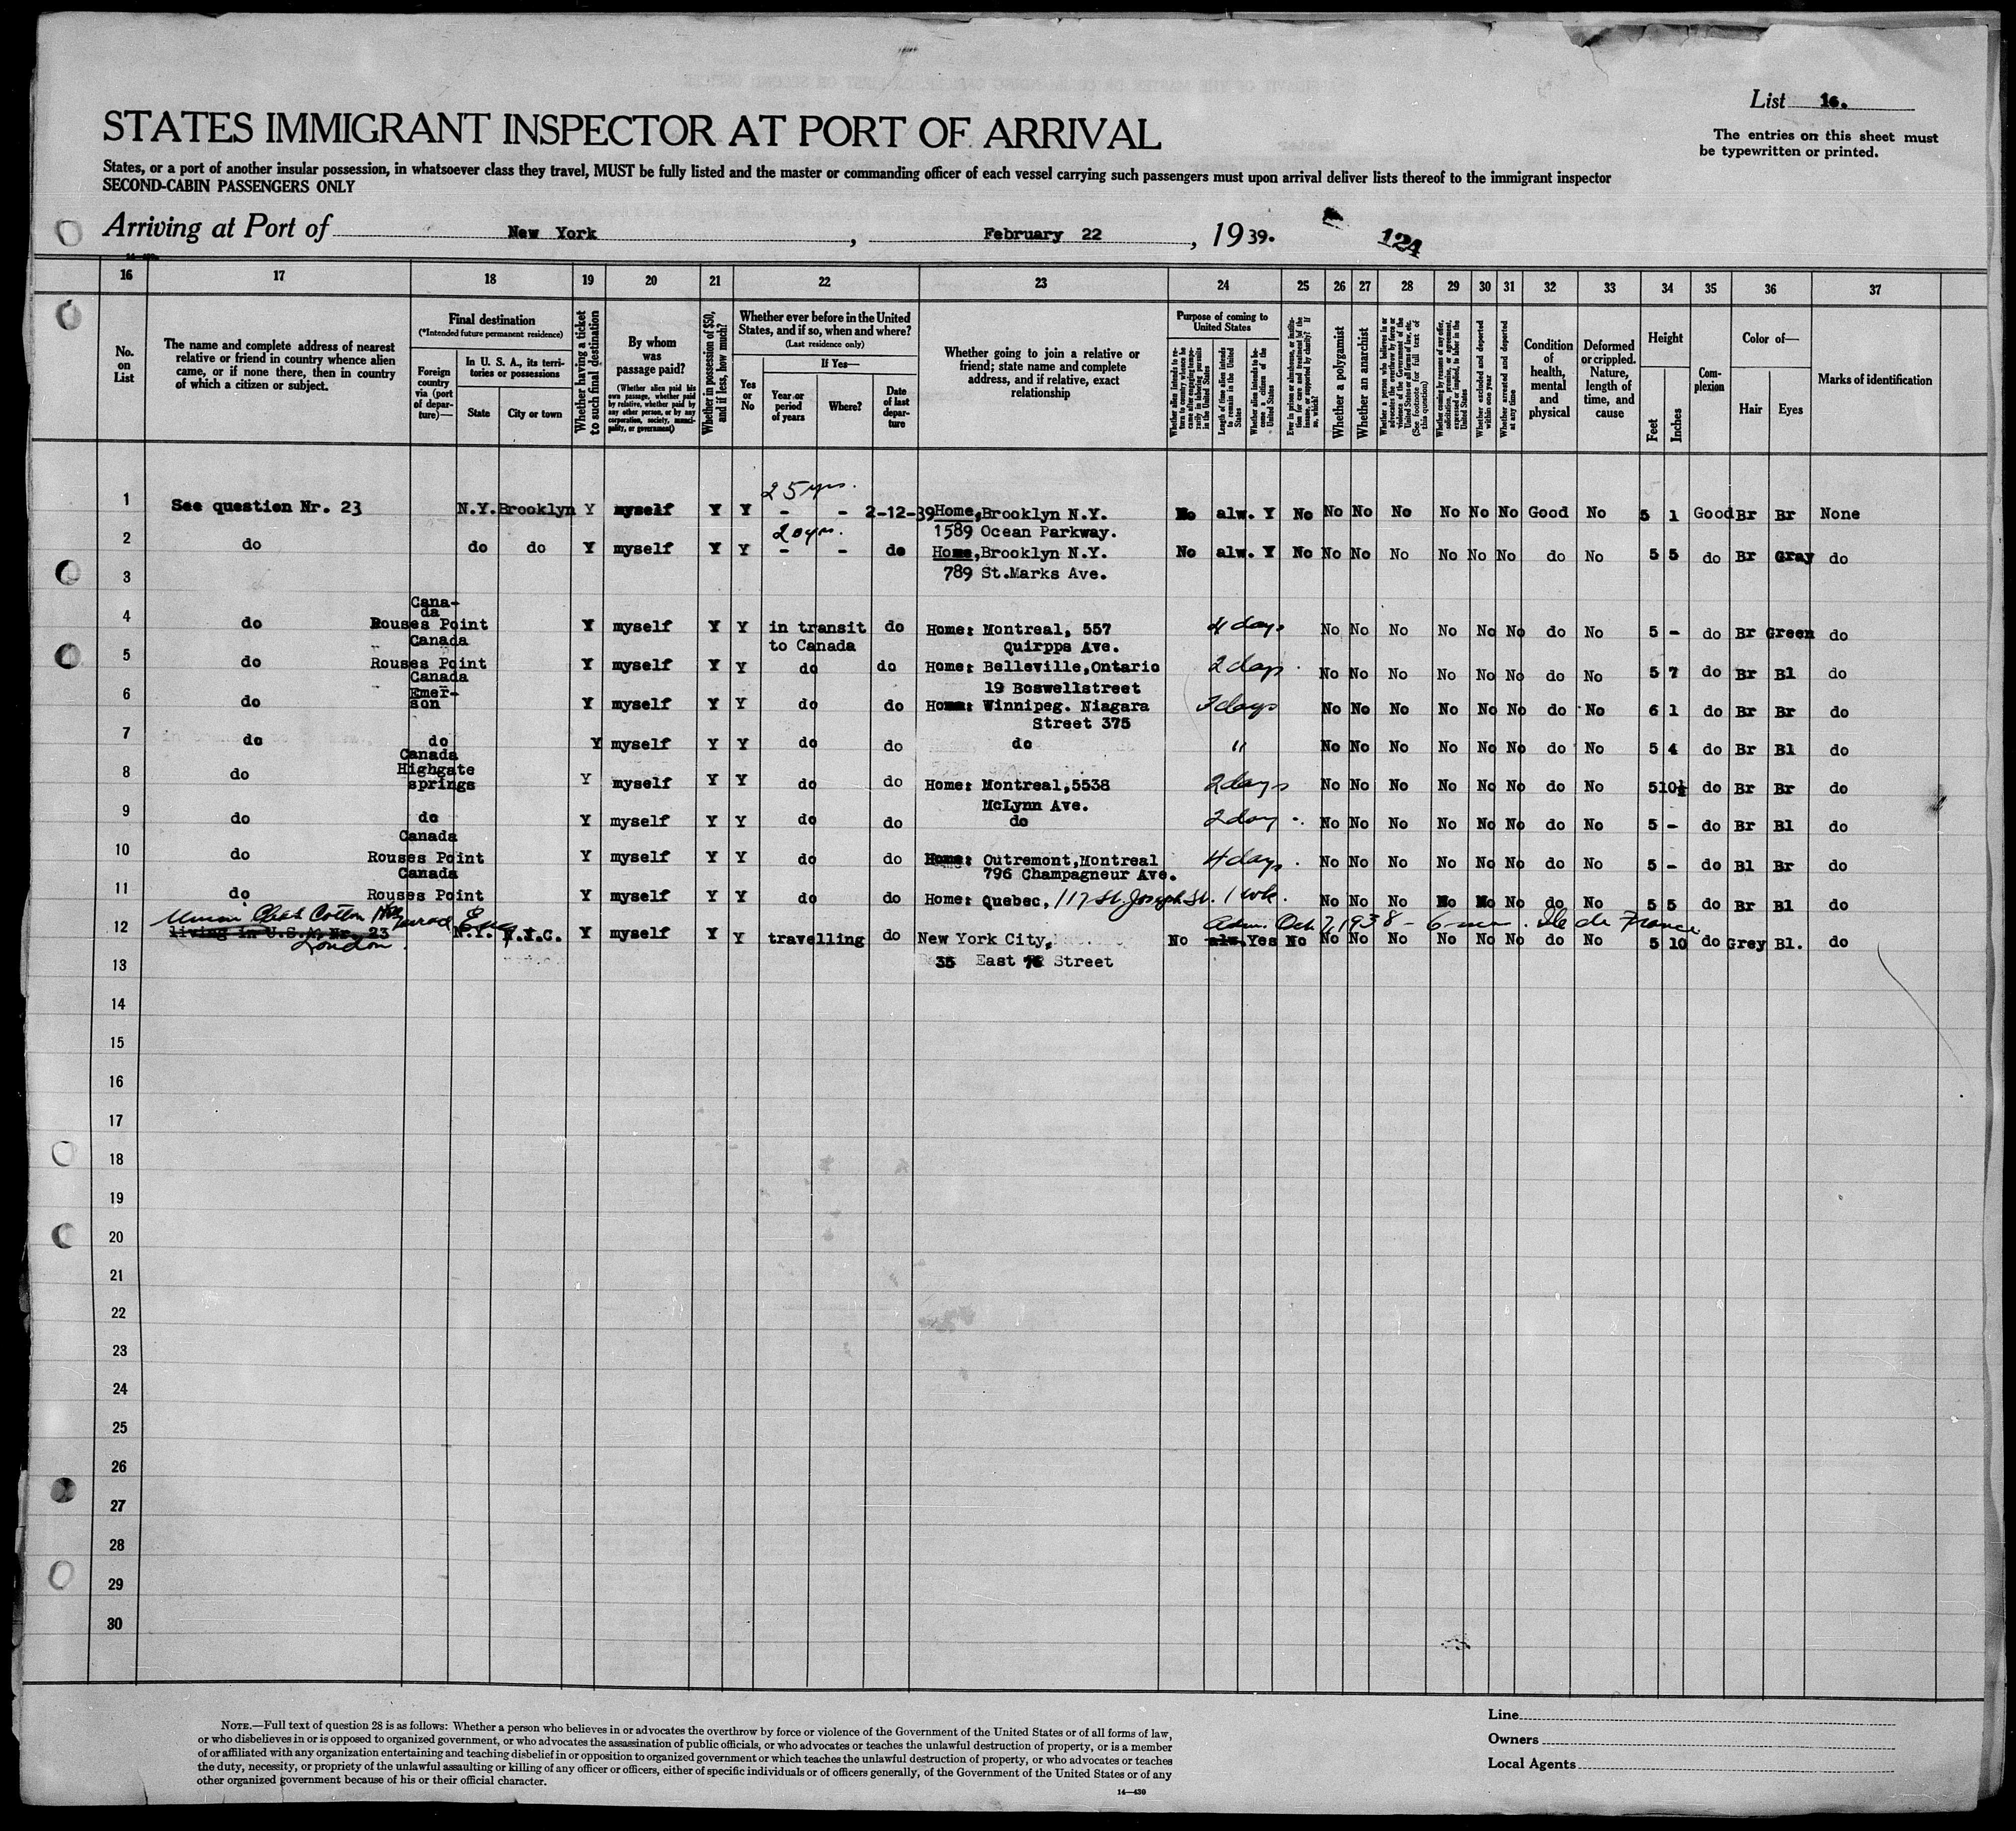 List 16.
STATES IMMIGRANT INSPECTOR AT PORT OF ARRIVAL
The entries on this sheet must
be typewritten or printed.
States, or a port of another insular possession, in whatsoever class they travel, MUST be fully listed and the master or commanding officer of each vessel carrying such passengers must upon arrival deliver lists thereof to the immigrant inspector
SECOND-CABIN PASSENGERS ONLY
Arriving at Port of New York, February 22, 1939.
124
16 17 18 19 20 21 22 23 24 25 26 27 28 29 30 31 32 33 34 35 36 37
No. on List
The name and complete address of nearest relative or friend in country whence alien came, or if none there, then in country of which a citizen or subject.
Final destination
(*Intended future permanent residence)
Foreign country via (port of departure)—
In U. S. A., its territories or possessions
State
City or town
Whether having a ticket to such final destination
By whom was passage paid?
(Whether alien paid his own passage, whether paid by relative, whether paid by any other person, or by any corporation, society, municipality, or government)
Whether in possession of $50, and if less, how much?
Whether ever before in the United States, and if so, when and where?
(Last residence only)
Yes or No
If Yes—
Year or period of years
Where?
Date of last departure
Whether going to join a relative or friend; state name and complete address, and if relative, exact relationship
Purpose of coming to United States
Whether alien intends to return to country whence he came after engaging temporarily in laboring pursuits in the United States
Length of time alien intends to remain in the United States
Whether alien intends to become a citizen of the United States
Ever in prison or almshouse, or institution for care and treatment of the insane, or supported by charity? If so, which?
Whether a polygamist
Whether an anarchist
Whether a person who believes in or advocates the overthrow by force or violence of the Government of the United States or all forms of law, etc. (See footnote for full text of this question)
Whether coming by reasons of any offer, solicitation, promise, or agreement, expressed or implied, to labor in the United States
Whether excluded and deported within one year
Whether arrested and deported at any time
Condition of health, mental and physical
Deformed or crippled. Nature, length of time, and cause
Height
Feet
Inches
Complexion
Color of—
Hair
Eyes
Marks of identification
25 yrs.
1 See question Nr. 23 N.Y. Brooklyn Y myself Y Y - - 2-12-39 Home, Brooklyn N.Y. No alw. Y No No No No No No No Good No 5 1 Good Br Br None
20 yrs. 1589 Ocean Parkway.
2 do do do Y myself Y Y - - do Home, Brooklyn N.Y. No alw. Y No No No No No No No do No 5 5 do Br Gray do
3 789 St.Marks Ave.
Canada
4 do Rouses Point Y myself Y Y in transit do Home: Montreal, 557 4 days No No No No No No do No 5 - do Br Green do
Canada to Canada Quirpps Ave.
5 do Rouses Point Y myself Y Y do do Home: Belleville,Ontario 2 days. No No No No No No do No 5 7 do Br Bl do
Canada 19 Boswellstreet
6 do Emerson Y myself Y Y do do Home: Winnipeg. Niagara 3 days No No No No No No do No 6 1 do Br Br do
Street 375
7 do do Y myself Y Y do do do " No No No No No No do No 5 4 do Br Bl do
Canada
8 do Highgate springs Y myself Y Y do do Home: Montreal,5538 2 days No No No No No No do No 5 10½ do Br Br do
McLynn Ave.
9 do do Y myself Y Y do do do 2 day No No No No No No do No 5 - do Br Bl do
Canada
10 do Rouses Point Y myself Y Y do do Home: Outremont,Montreal 4 days. No No No No No No do No 5 - do Bl Br do
Canada 796 Champagneur Ave.
11 do Rouses Point Y myself Y Y do do Home: Quebec, 117 St. Joseph St. 1 wk. No No No No No No do No 5 5 do Br Bl do
Cotton London
Adm. Oct 7, 1938 - 6 mo. Ile de France
12 living in U.S.A. Nr. 23 N.Y. N.Y.C. Y myself Y Y travelling do New York City, No alw. Yes No No No No No No No do No 5 10 do Grey Bl. do
13 35 East 76 Street
14
15
16
17
18
19
20
21
22
23
24
25
26
27
28
29
30
NOTE.—Full text of question 28 is as follows: Whether a person who believes in or advocates the overthrow by force or violence of the Government of the United States or of all forms of law,
or who disbelieves in or is opposed to organized government, or who advocates the assassination of public officials, or who advocates or teaches the unlawful destruction of property, or is a member
of or affiliated with any organization entertaining and teaching disbelief in or opposition to organized government or which teaches the unlawful destruction of property, or who advocates or teaches
the duty, necessity, or propriety of the unlawful assaulting or killing of any officer or officers, either of specific individuals or of officers generally, of the Government of the United States or of any
other organized government because of his or their official character.
14—430
Line
Owners
Local Agents